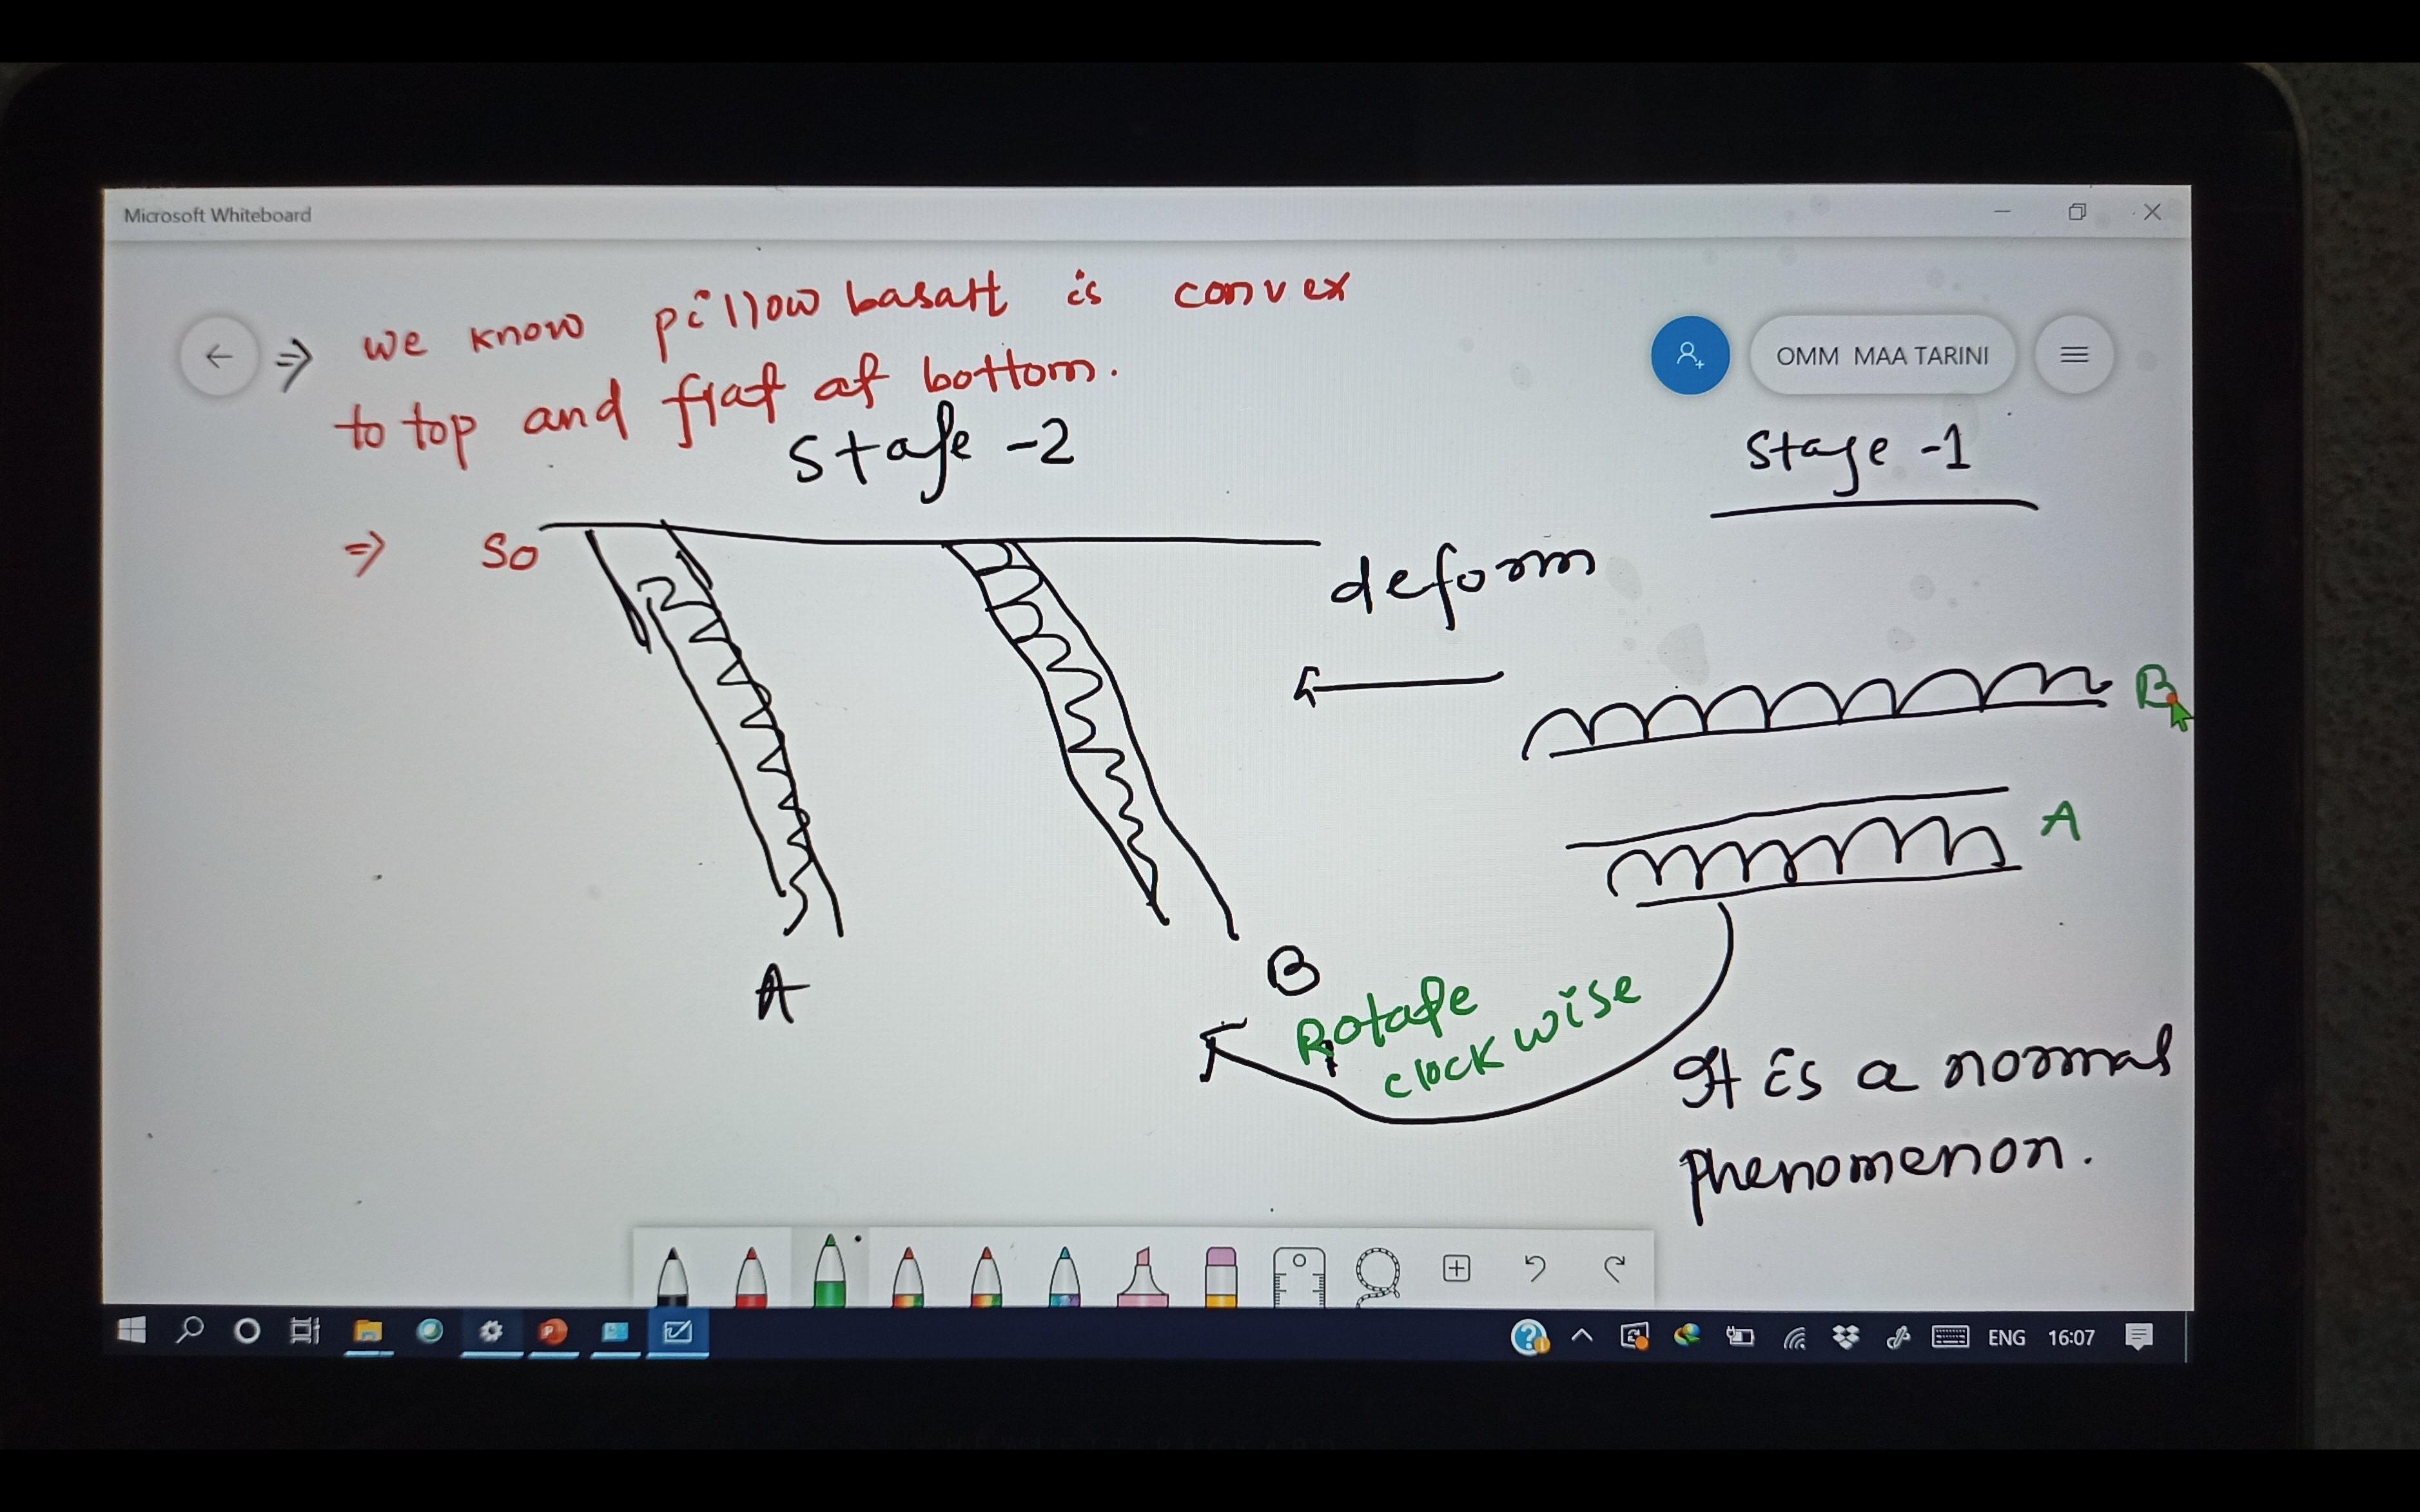 Microsoft Whiteboard
⇒ we know pillow basalt is convex
to top and flat at bottom.
OMM MAA TARINI
Stage -2
Stage -1
⇒ So
deform
B
A
A
B
Rotate
clock wise
It is a normal
phenomenon.
ENG 16:07